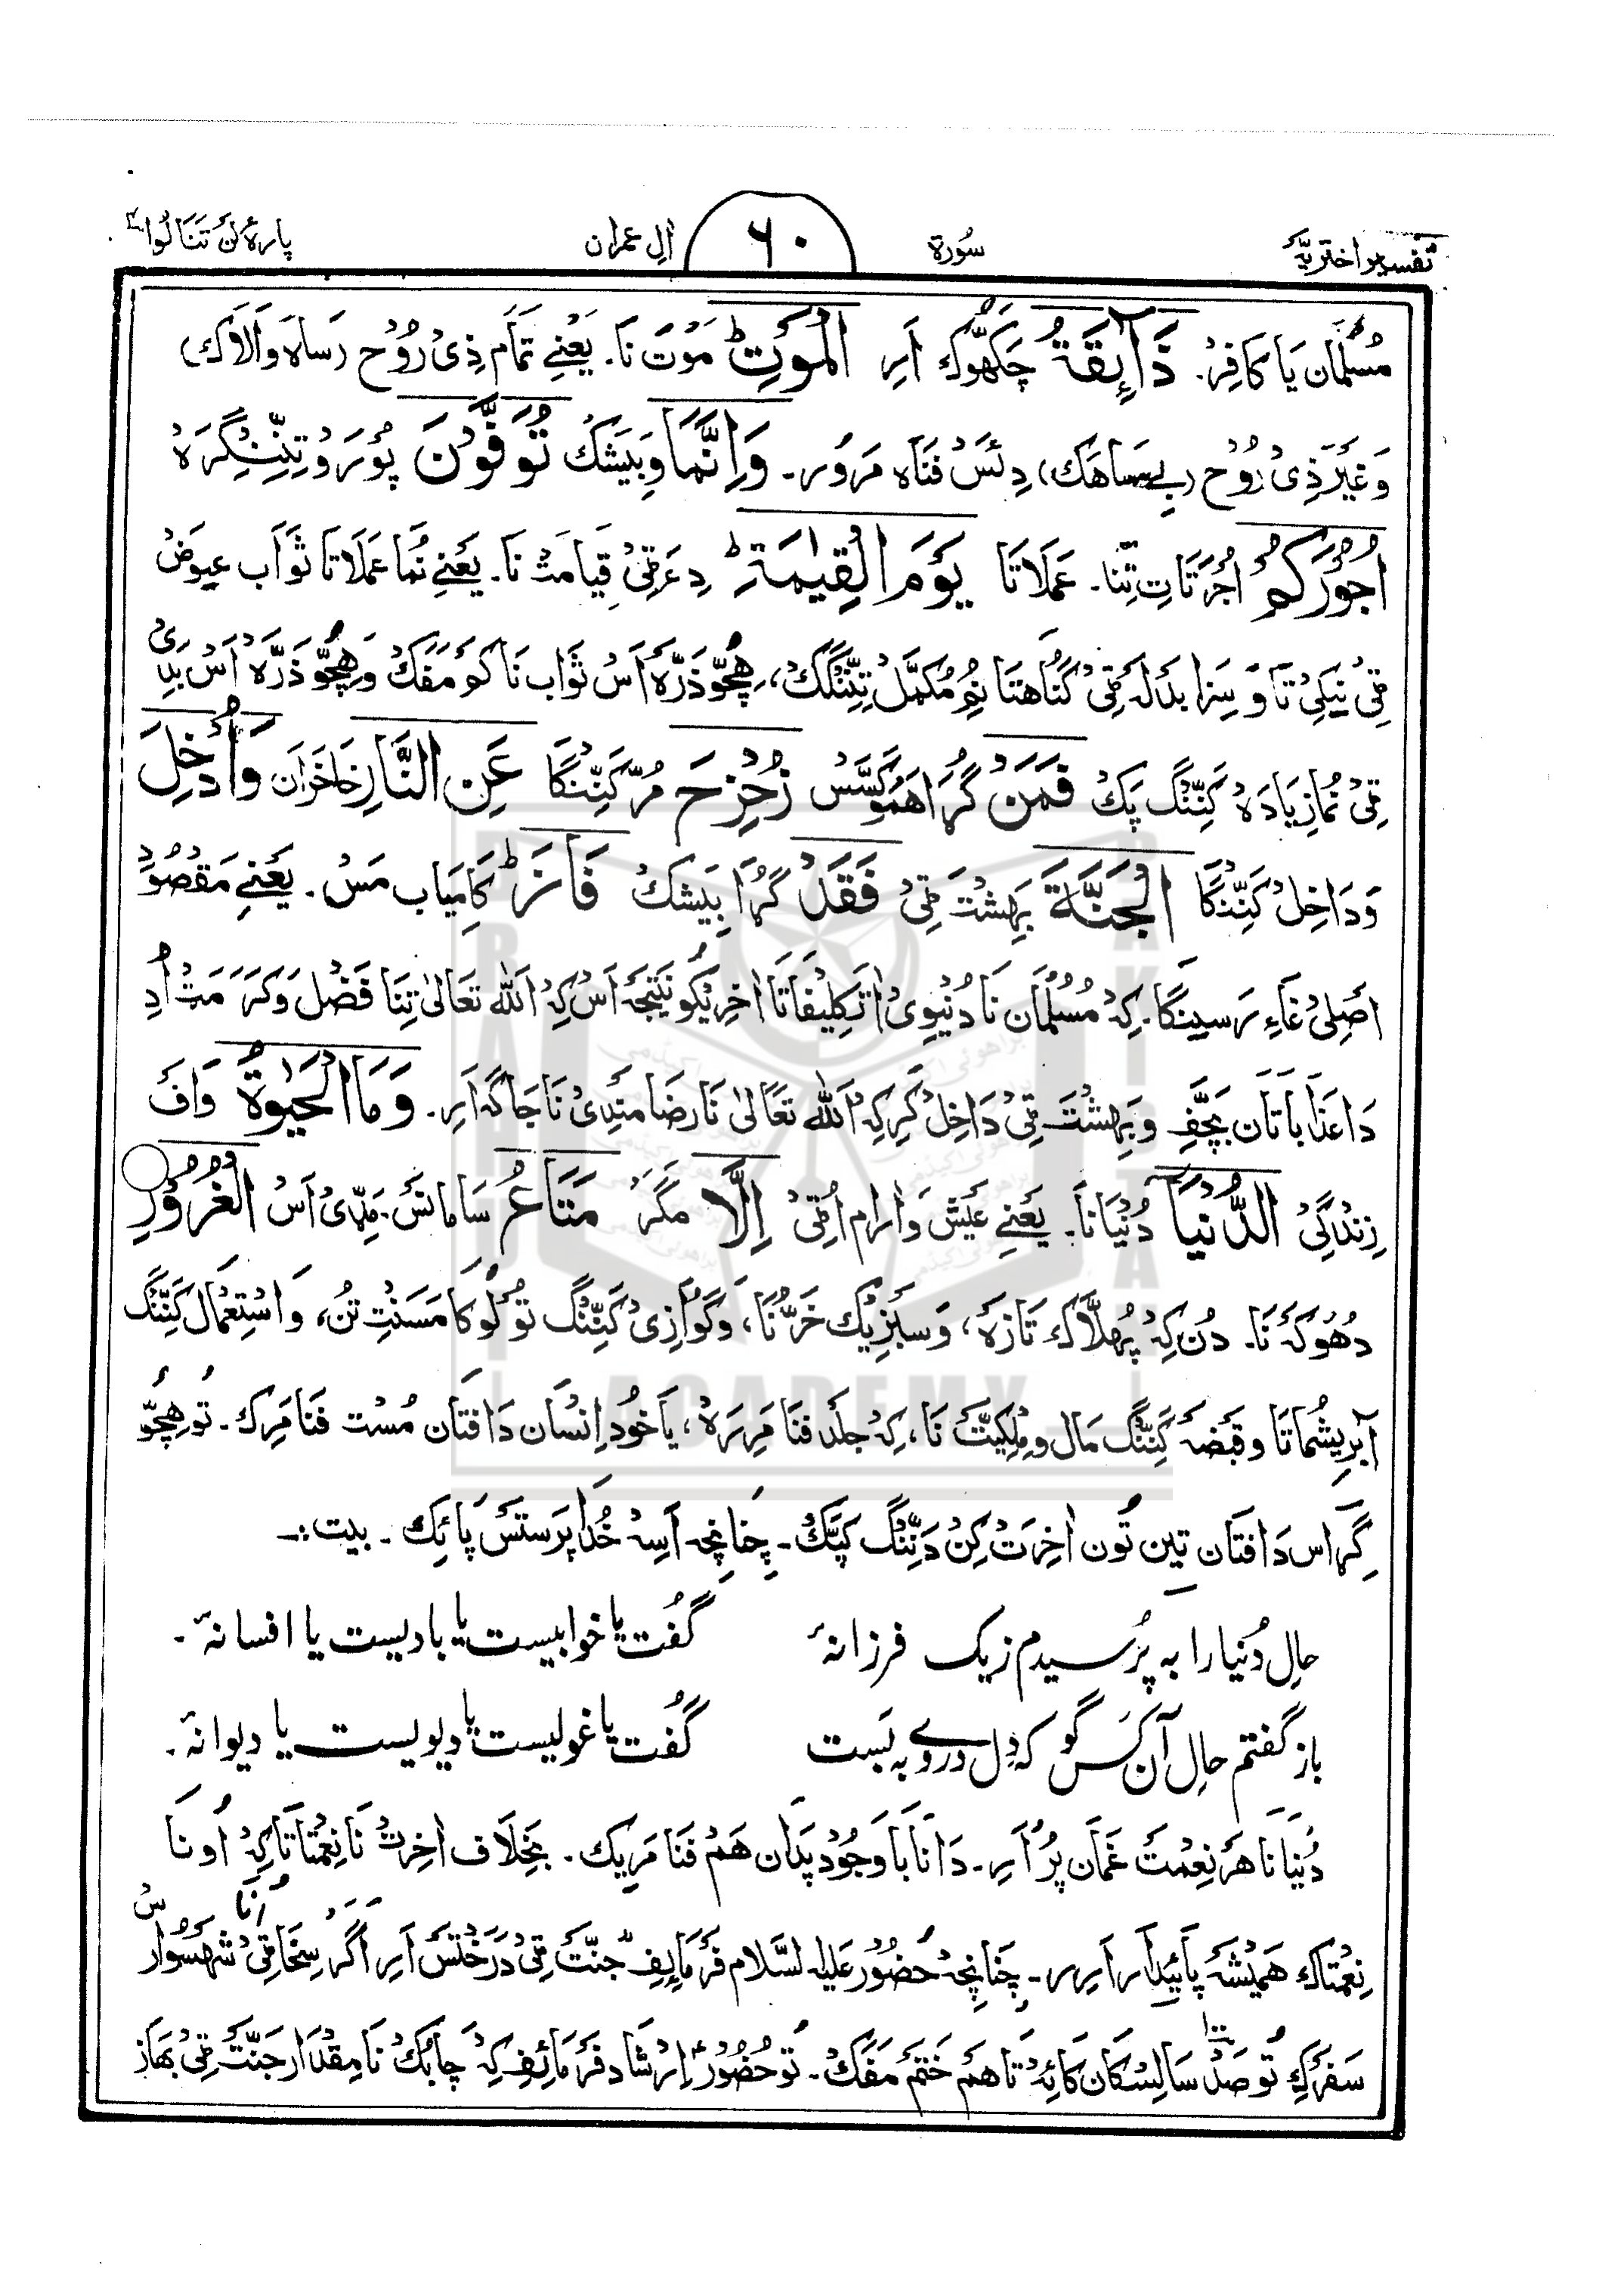 تفسیر اختریہ
سُورة
۶۰
اٰلِ عمران
پارۂ لَنْ تَنَالُوا ۴
مُسلمان یا کافِر۔ ذَآئِقَةُ چَکھوک اَرِ الْمَوْتِ ط مَوْت نَا۔ یَعْنِے تَمَام ذِیْ رُوْح (ساہ وَالاک)
وَغَیْر ذِیْ رُوْح (بے ساھک) دِئَسْ فَنَاہ مَرور۔ وَاِنَّمَا وبیشک تُوَفَّوْنَ پُوْرَو تِنِنْگِرَہْ
اُجُوْرَكُمْ اُجْرَتَاتِ تِنَا۔ عَمَلَاتَا يَوْمَ الْقِيٰمَةِ ط دِءَ ٹِیْ قِیَامَتْ نَا۔ یَعْنِے نُمَا عَمَلَاتَا ثَوَاب عِیوَضْ
ٹِیْ نیکی تَا وَ سِزا بَدلہ ٹِیْ گُنَاھتَا نُمِ مُکَمَّل تِنِنْگِکْ، ھِچّو ذَرّہ اَسْ ثَوَاب نَا کَم مَفَکْ وَ ھِچّو ذَرّہ اَسْ بَدِیْ
ٹِیْ نُمَا زِیَادَہْ کَنِنْگ پَکْ فَمَنْ گُڑا ھَمُو کَسَّسْ زُحْزِحَ مُرّ کَنِنْگَا عَنِ النَّارِ خَاخَرَان وَاُدْخِلَ
وَدَاخِلْ کَنِنْگَا الْجَنَّةَ بَہِشْت ٹِیْ فَقَدْ گُڑا بِیشک فَازَ ط کَامْیَاب مَسْ۔ یَعْنِے مَقْصُوْدِ
اَصْلِیْ غَاءِ رَسِینگا۔ کِہ مُسْلْمَان نَا دُنْیوی اتَکلیفاتَا اٰخِریکو نَتیجہ اَسْ کِہ اللہ تَعَالیٰ تِنَا فَضْل وَ کَرَمَتْ اُدِ
دَا عَذَابَاتَان بَچّفِ وَ بَہِشْت ٹِیْ دَاخِلْ کَرِ کِہ اللہ تَعَالیٰ نَا رِضَامَندِیْ نَا جَاگہ اَرِ۔ وَمَا الْحَيٰوةُ وَاَفْ
زِندگِیْ الدُّنْيَا دُنْیَانَا۔ یَعْنِے عَیْش وَ اٰرام اُٹِیْ اِلَّا مَگَرْ مَتَاعُ سَامانَسْ، مَڈّی اَسْ الْغُرُوْرِ
دُھُوکَہ نَا۔ دُنکِہ پُھلّاک تَازَہ، وَ سَبْزیک خَرُّنَا، وَ گوازِیْ کَنِنْگ تو گوکا مَسَنْتِ تُن، وَ اسْتِعْمَال کَنِنْگ
اَبرِیشُماتَا وَ قَبْضَہ کَنِنْگ مَال و مِلْکِیَّتْ نَا، کِہ جَلْد فَنَا مَرِرَہْ، یَا خُود اِنْسَان دَافتَان مُسْت فَنَا مَرِک۔ تو ھِچّو
گِڑاس دَافتَان تین تُون اٰخِرَتْ کِن دَنِنْگ کَپکْ۔ چُنَانچہ اَسِہ خُدَا پَرَستَسْ پَائِک۔ بیت:۔
حالِ دُنیا را بہ پُرسیدم ز یک فرزانۂ گُفت یا خوابیست یا بادیست یا افسانۂ۔
باز گفتم حالِ آن کَس گو کہ دِل دروے بہ بَست گُفت یا غولیست یا دیویست یا دیوانۂ۔
دُنْیَانَا ھَر نِعْمَتْ غَمَان پُر اَرِ۔ دَانَا بَاوَجُوْد پَدَان ھَمْ فَنَا مَرِیک۔ بَخِلَاف اٰخِرتْ نَا نِعْمَتَاتا کِہ اُونَا
نِعْمَتَاک ھَمیشَہ پَائِیدار اَرِیر۔ چُنَانچہ حُضُوْر عَلیہ السَّلَام فَرْمَایفِ جنّت ٹِیْ دَرَخْتَسْ اَرِ اَگَر سِخَا ٹِیْ اُنَا شَہسُوارَسْ
سَفَر کِ تو صَدْ ۱۰۰ سَالِسْکان کائِہ تا ھَم خَتْم مَفَکْ۔ تو حُضُوْرؐ اِرْشَاد فَرمَائفِ کِہ چَابُکْ نَا مِقْدَار جَنّتْ ٹِیْ بھاز